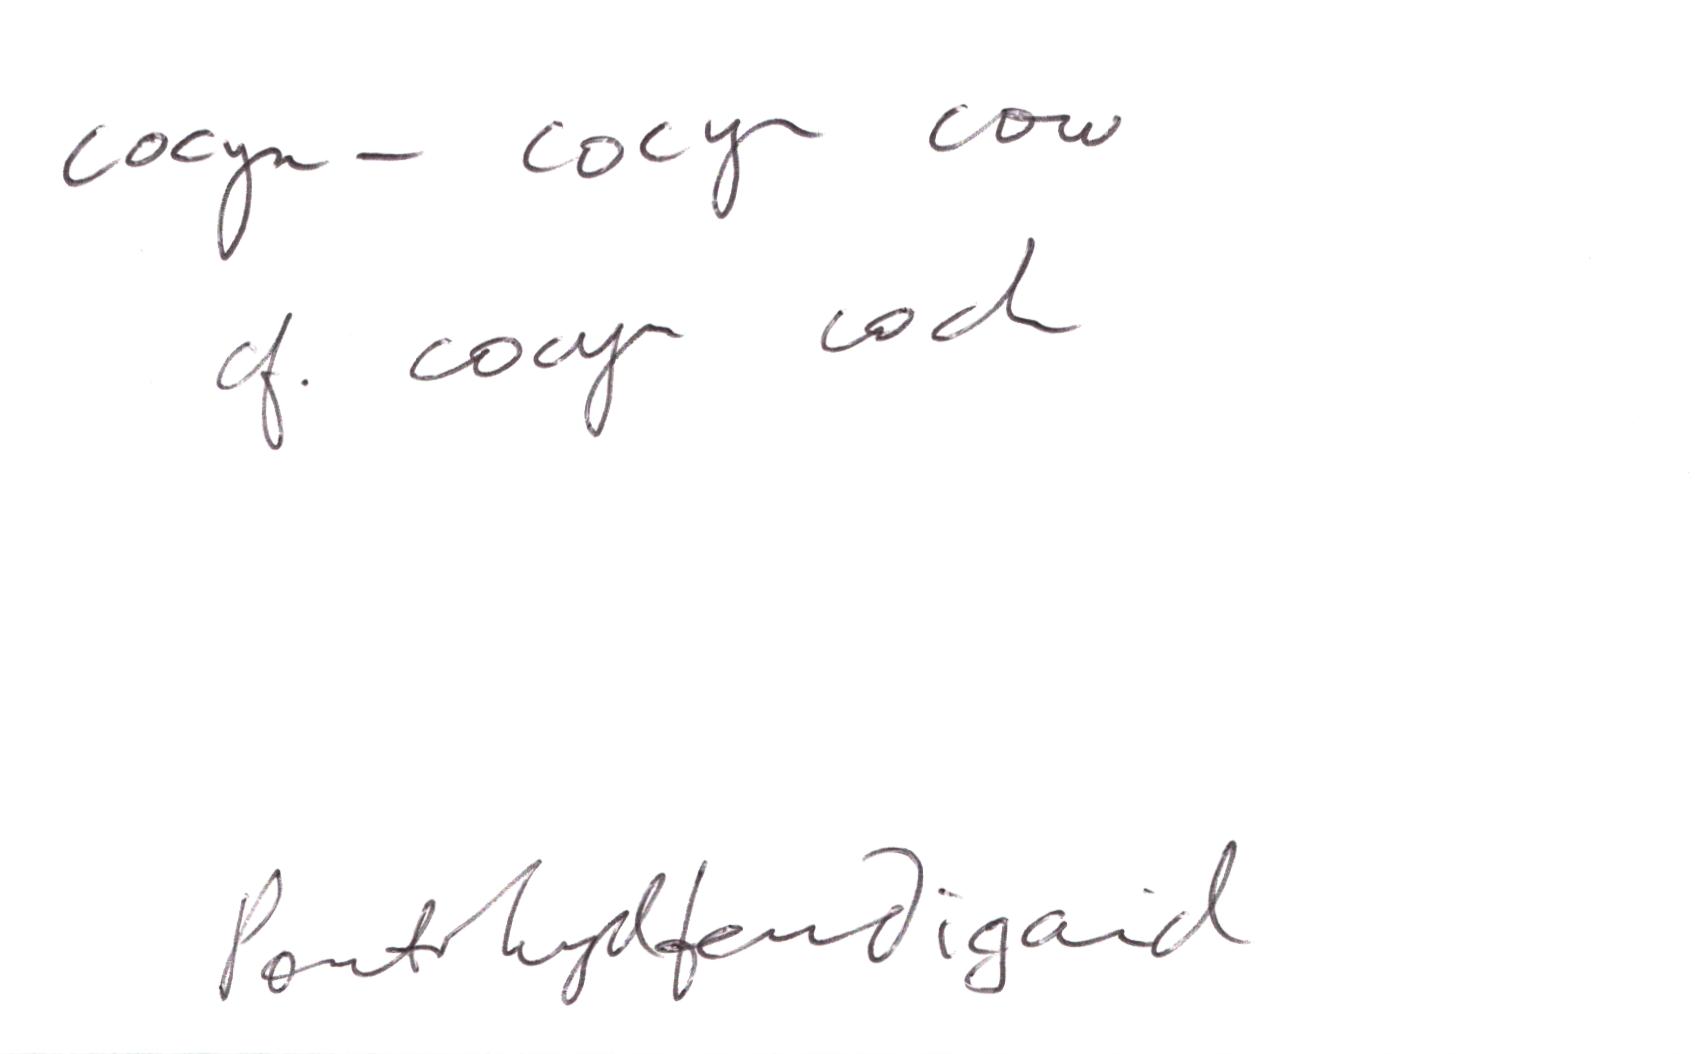 cocyn – cocyn cow
cf. cocyn coch
Pontrhydfendigaid